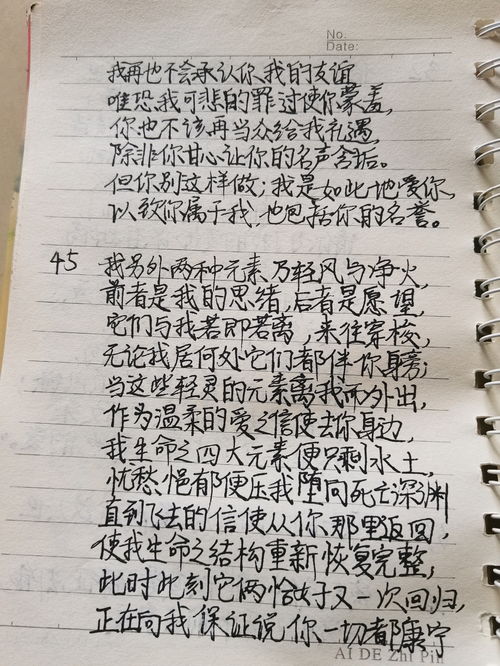 No.
Date:
我再也不会承认你我的友谊
唯恐我可悲的罪过使你蒙羞,
你也不该再当众给我礼遇,
除非你甘心让你的名声含垢。
但你别这样做;我是如此地爱你,
以致你属于我,也包括你的名誉。
45 我另外两种元素,乃轻风与净火,
前者是我的思绪,后者是愿望,
它们与我若即若离,来往穿梭,
无论我居何处它们都伴你身旁;
当这些轻灵的元素离我而外出,
作为温柔的爱之信使去你身边,
我生命之四大元素便只剩水土,
忧愁悒郁便压我堕向死亡深渊
直到飞去的信使从你那里返回,
使我生命之结构重新恢复完整,
此时此刻它俩恰好又一次回归,
正在向我保证说你一切都康宁
AI DE Zhi Pin